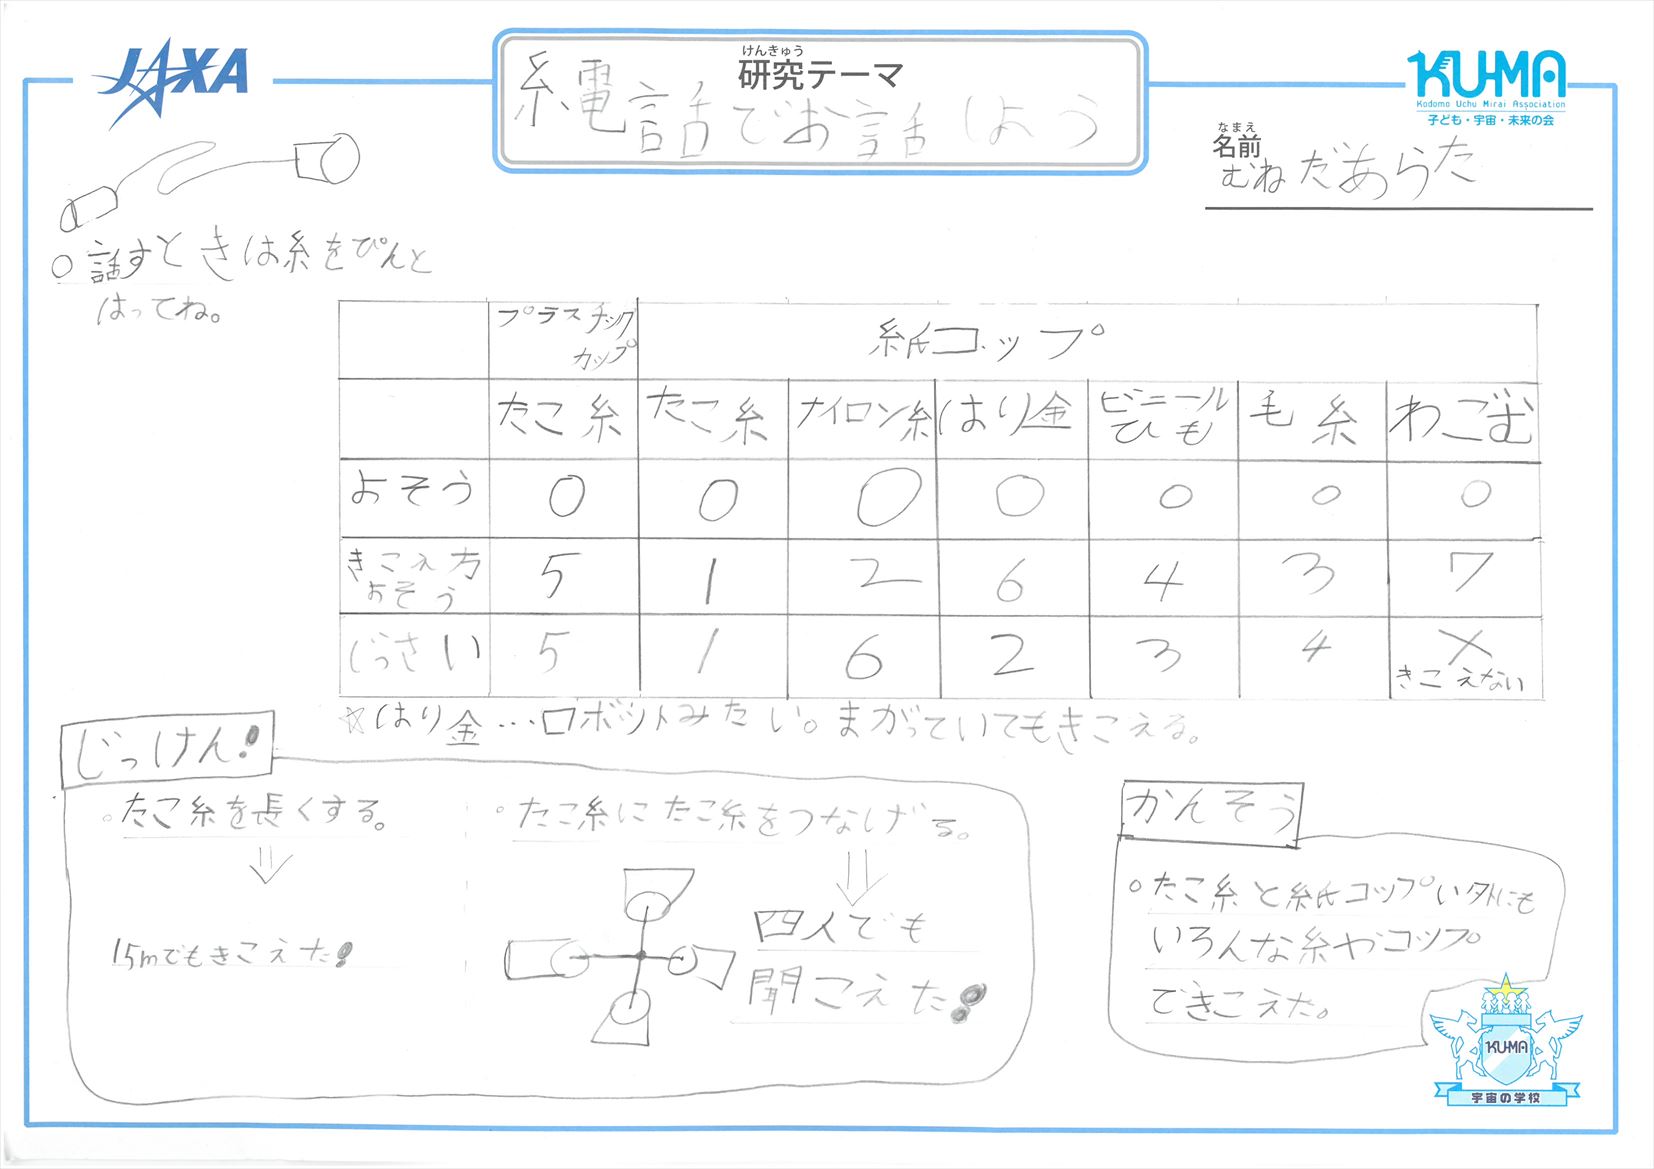 JAXA
けんきゅう
研究テーマ
糸電話でお話しよう
KU-MA
Kodomo Uchu Mirai Association
子ども・宇宙・未来の会
なまえ
名前
むねだあらた
○話すときは糸をぴんと
はってね。
プラスチック
カップ
紙コップ
たこ糸 たこ糸 ナイロン糸 はり金 ビニール
ひも 毛糸 わごむ
よそう ○ ○ ○ ○ ○ ○ ○
きこえ方
よそう 5 1 2 6 4 3 7
じっさい 5 1 6 2 3 4 ×
きこえない
☆はり金…ロボットみたい。まがっていてもきこえる。
じっけん!
○たこ糸を長くする。
⇓
15mでもきこえた!
○たこ糸にたこ糸をつなげる。
⇓
四人でも
聞こえた!
かんそう
○たこ糸と紙コップい外にも
いろんな糸やコップ
できこえた。
KU-MA
宇宙の学校